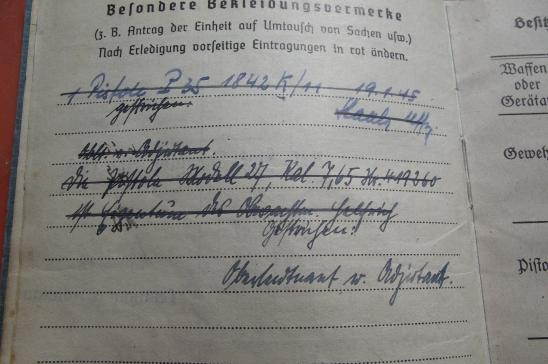 Besondere Bekleidungsvermerke
(z. B. Antrag der Einheit auf Umtausch von Sachen usw.)
Nach Erledigung vorseitige Eintragungen in rot ändern.
1 Pistole P 35 1842 K/11 19.1.45
gestrichen.
u. Adjutant.
die Pistole Modell 27, Kal 7,65 Nr. 419260
ist Eigentum des Helfrich
Gestrichen!
Oberleutnant u. Adjutant.
Besitz
Waffen
oder
Gerätar
Gewehr
Pistol